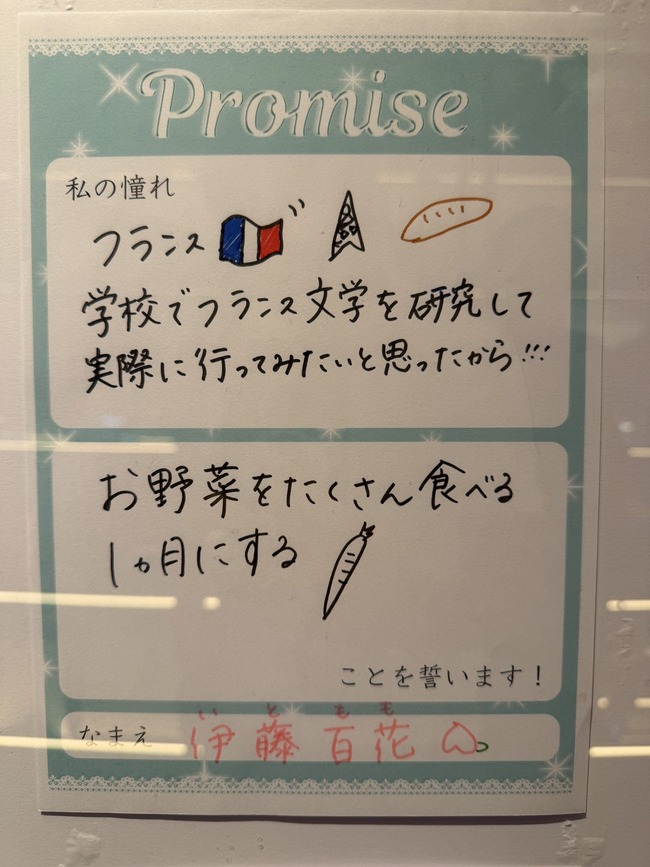 Promise
私の憧れ
フランス
学校でフランス文学を研究して
実際に行ってみたいと思ったから!!!
お野菜をたくさん食べる
1ヵ月にする
ことを誓います!
いともも
なまえ 伊藤百花